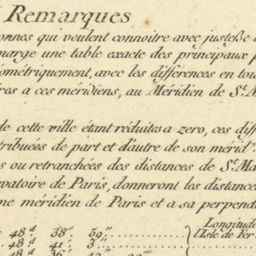 Remarques
onnes qui veulent connoitre avec justesse
marge une table exacte des principaux
ométriquement, avec les différences en tou
res a ces méridiens, au Méridien de St. M
de cette ville étant réduites a zero, ces dif
tribuées de part et d'autre de son merid
s ou retranchées des distances de St. Ma
rvatoire de Paris, donneront les distance
ne méridien de Paris et a sa perpend
Longitude
l'Isle de Fer
48d 38' 59"
48d 41' 3"